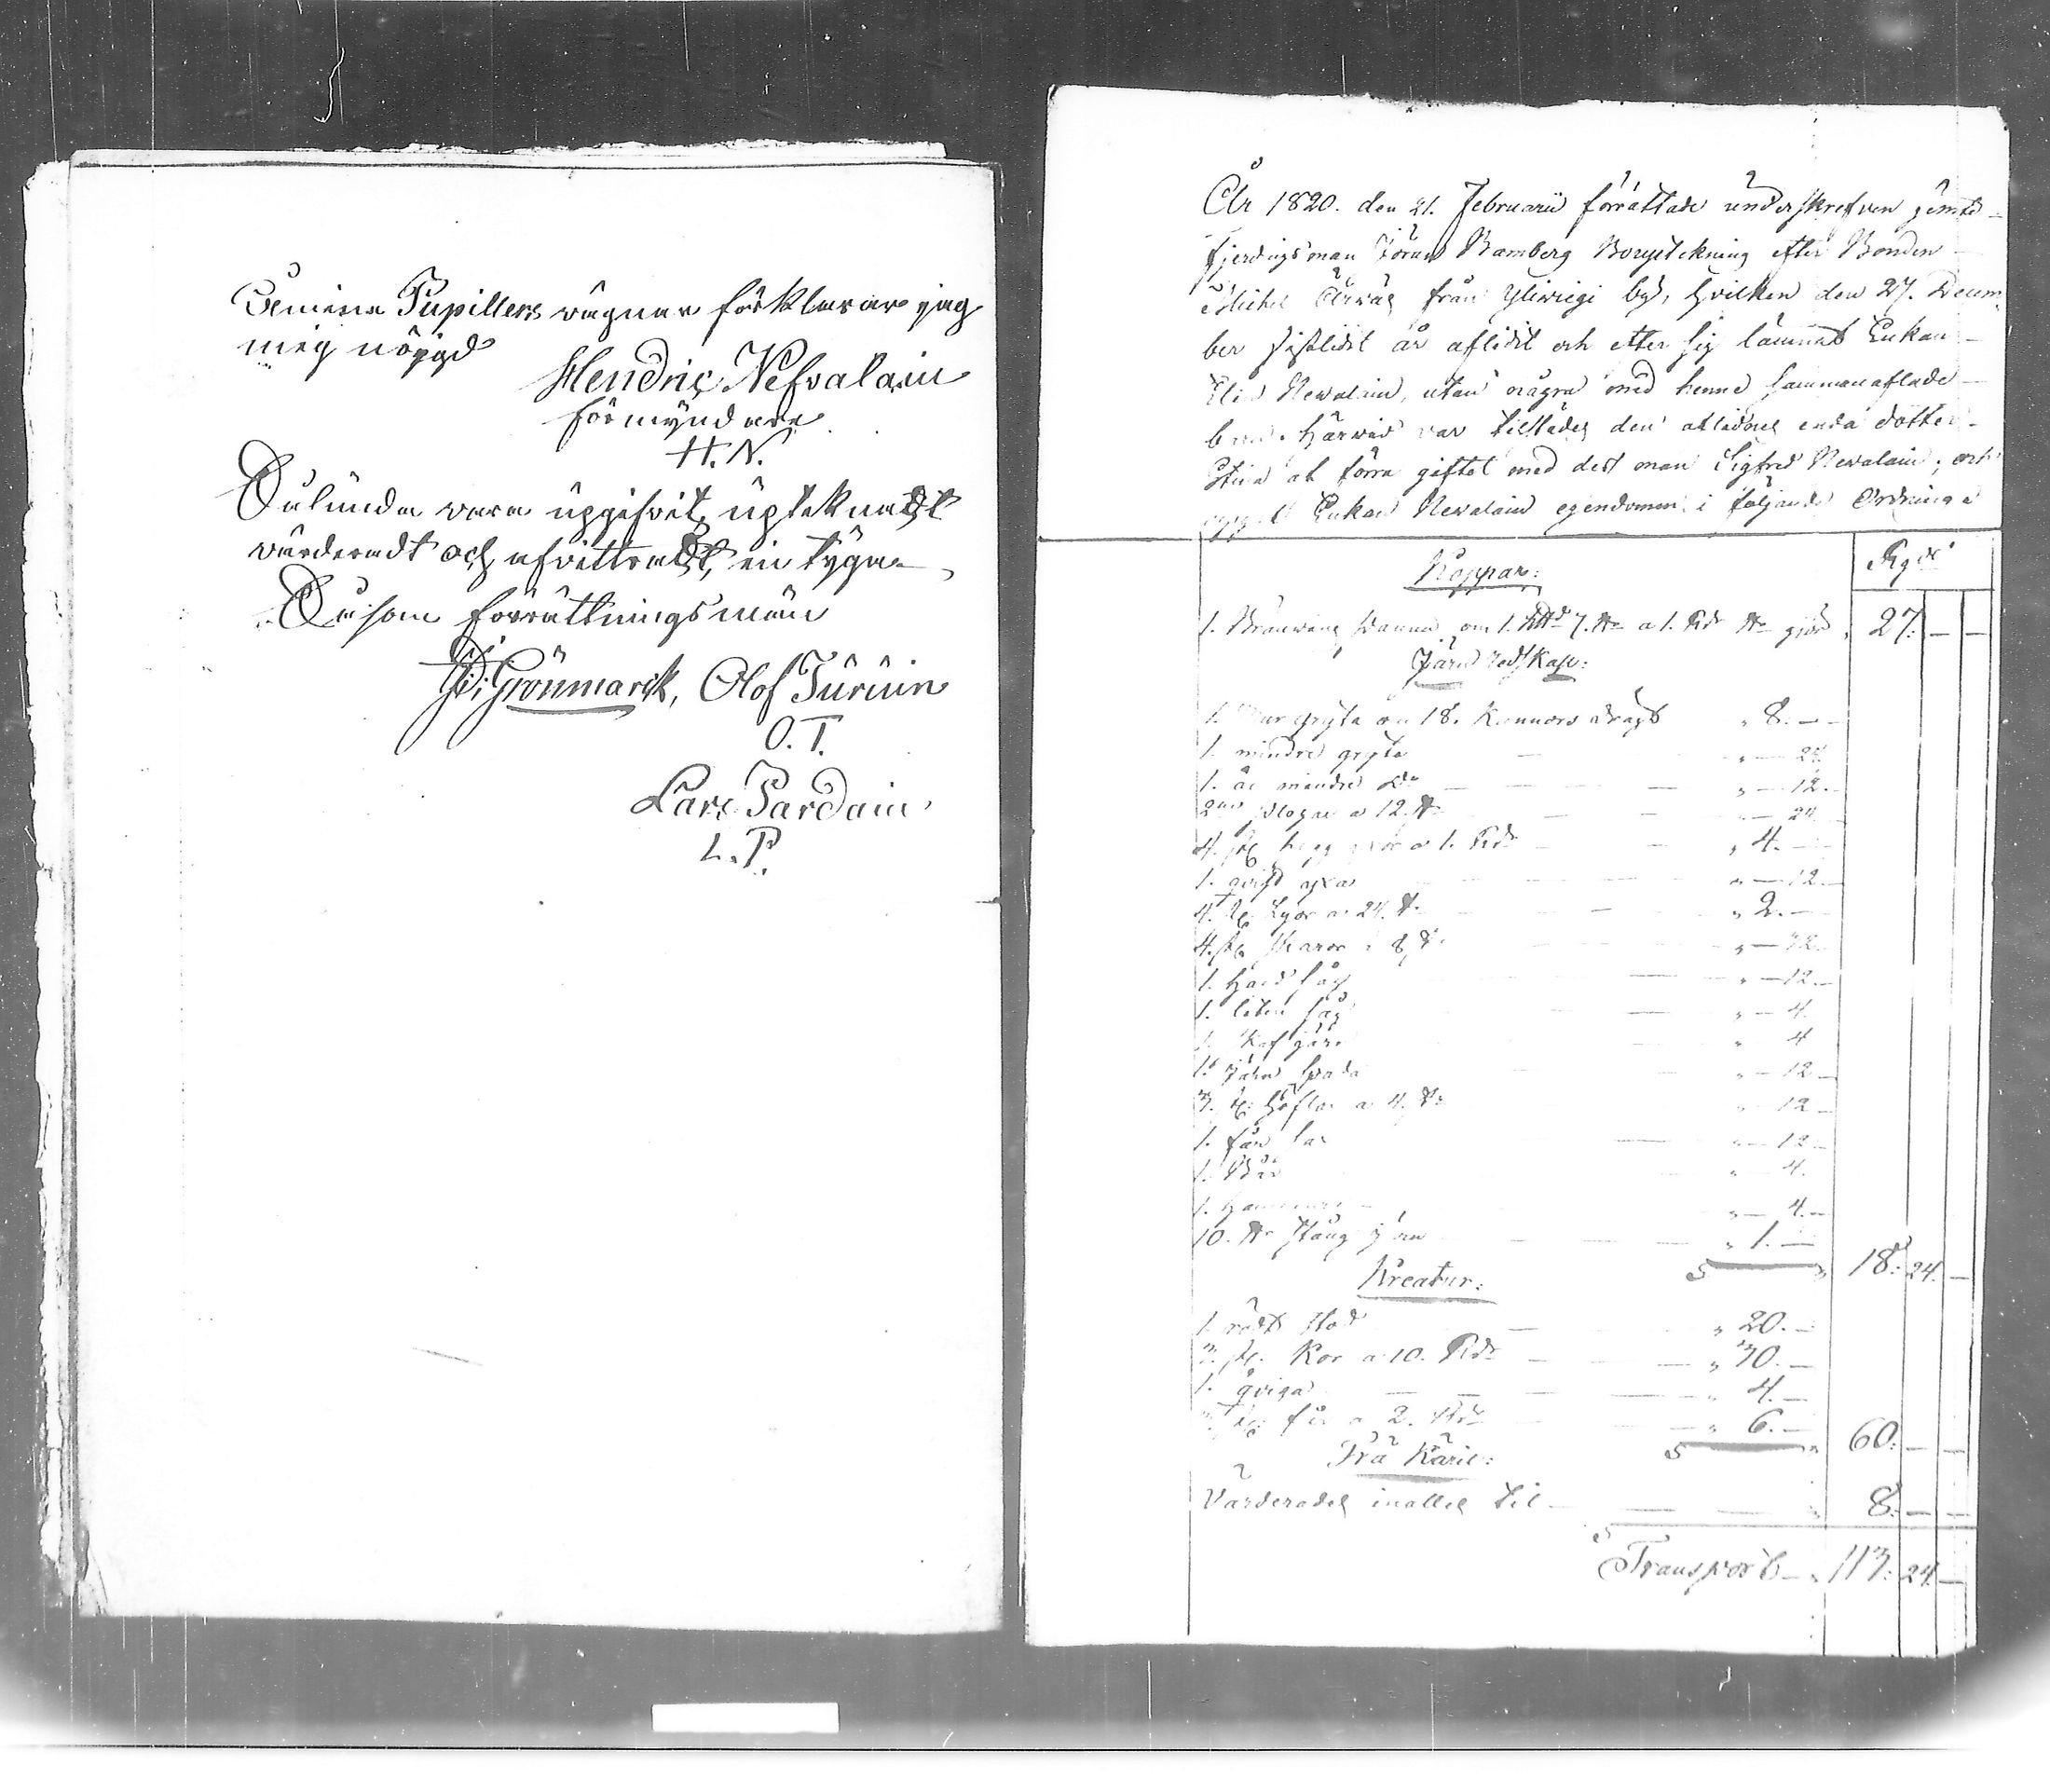 Å mina Pupillers vägnar förklarar jag
mig nöygd
Hendric Nefvalain
förmyndare
H. N.
Sålunda vara upgifvit, upteknadt
värderadt och afvittradt, en tyga
Som förrättningsmän
Grönmarck, Olof Turuin
O. T.
Lars Pardain
L. P.
År 1820. den 21. Februarii förrättade underskrefven jämte
fjerdingsman Jöran Bamberg Bouptekning efter Bonden
Michel från Yliviegi by, hvilken den 27. Decem-
ber sistledit år aflidit och efter sig lämnat Enkan
Nevalain, utan några med henne sammanaflade
barn. Härvid var tillstädes den aflidnes enda dotter
Stina af förra giftet med dess man Sigfred Nevalain, och
Enkan Nevalain egendomen i följande Ordning
Koppar: Rgds
1. Bränvins Panna om 1. 7. a 1. Rdr gjör 27. — —
Järn redskap:
1. gryta om 18. Kannors drägt " 8. —
1. mindre gryta " — 24
1. än mindre do " — 12. —
2ne Plogar a 12. " — 24
4. st. hugg yxor a 1. Rdr " 4. —
1. qvist yxa " — 12. —
4. st. Lyor a 24. " 2. —
4. st. skaror a 8 " — 32.
1. Hand såg " — 12. —
1. liten såg " — 4.
1. " 4
1. Järn spada " — 12 —
3. st. Höflar a 4. " — 12 —
1. får sax " — 12 —
1. " — 4.
1. Hammare " — 4. —
10. stång järn " 1. —
18: 24. —
Kreatur:
1. rödt stod " 20. —
3. st. Kor a 10. Rdr " 30. —
1. qviga " 4. —
3. st. får a 2. Rdr " 6. —
60: — —
Trä Käril:
Värderades inalles til " 8: — —
Transport " 113: 24. —